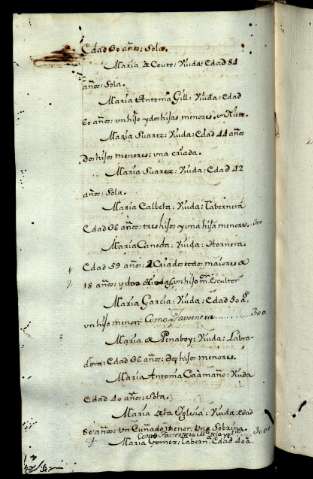 Edad 60 años: Sola.
Maria de Couto: Viuda: Edad 84
años: Sola.
Maria Antonia Gill: Viuda: Edad
60 años: un hijo y dos hijas menores,
Maria Suarez: Viuda: Edad 44 años
dos hijos menores: una criada.
Maria Suarez: Viuda: Edad 42
años: Sola.
Maria Calbeta: Viuda: Tabernera
Edad 36 años: tres hijos y una hija menores.
Maria Caneda: Viuda: Hornera
Edad 59 años: 2 Criados maiores de
18 años; un hijo
Maria Garcia: Viuda: Edad
un hijo menor: Como Tavernera 300
Maria de Penaboy: Viuda: Labra-
dora: Edad 36 años: dos hijos menores.
Maria Antonia Caamaño: Viuda
Edad 40 años: Sola.
Maria de la Yglesia: Viuda: edad
80 años: un Cuñado menor: Una Sobrina
Maria Gomez: Edad